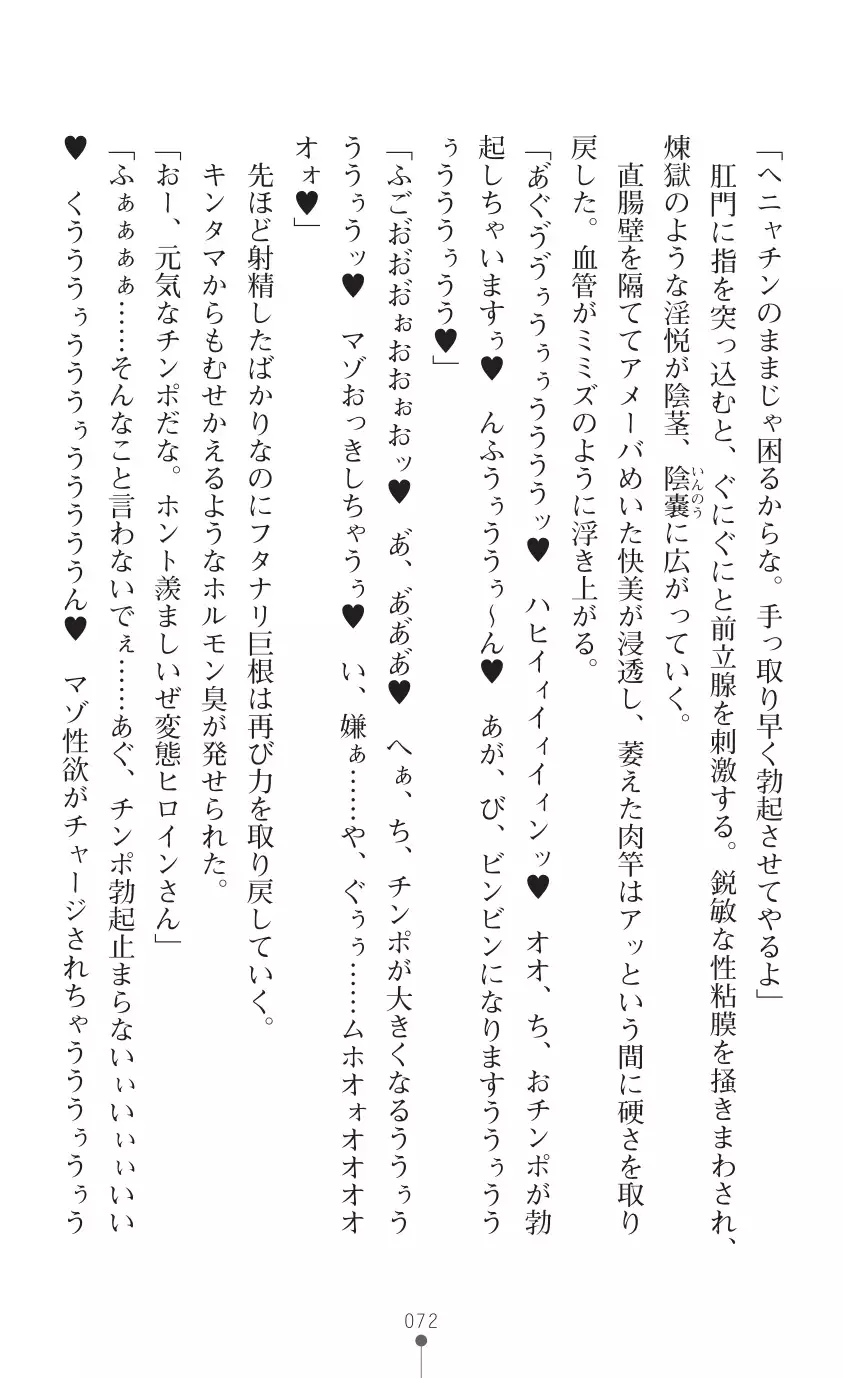 「ヘニャチンのままじゃ困るからな。手っ取り早く勃起させてやるよ」
　肛門に指を突っ込むと、ぐにぐにと前立腺を刺激する。鋭敏な性粘膜を掻きまわされ、
煉獄のような淫悦が陰茎、陰嚢いんのうに広がっていく。
　直腸壁を隔ててアメーバめいた快美が浸透し、萎えた肉竿はアッという間に硬さを取り
戻した。血管がミミズのように浮き上がる。
「あ゙ぐゔゔぅうぅぅううううッ♥　ハヒイィイィイィンッ♥　オオ、ち、おチンポが勃
起しちゃいますぅ♥　んふうぅううぅ～ん♥　あが、び、ビンビンになりますううぅうう
ぅうううぅうう♥」
「ふごお゙お゙お゙ぉおおぉおッ♥　あ゙、あ゙あ゙あ゙♥　へぁ、ち、チンポが大きくなるううぅう
ううぅうッ♥　マゾおっきしちゃうぅ♥　い、嫌ぁ……や、ぐぅぅ……ムホオォオオオオ
オォ♥」
　先ほど射精したばかりなのにフタナリ巨根は再び力を取り戻していく。
　キンタマからもむせかえるようなホルモン臭が発せられた。
「おー、元気なチンポだな。ホント羨ましいぜ変態ヒロインさん」
「ふぁぁぁぁ……そんなこと言わないでぇ……あぐ、チンポ勃起止まらないぃいぃぃいい
♥　くうううぅうううぅうううううん♥　マゾ性欲がチャージされちゃうううぅうぅう
072